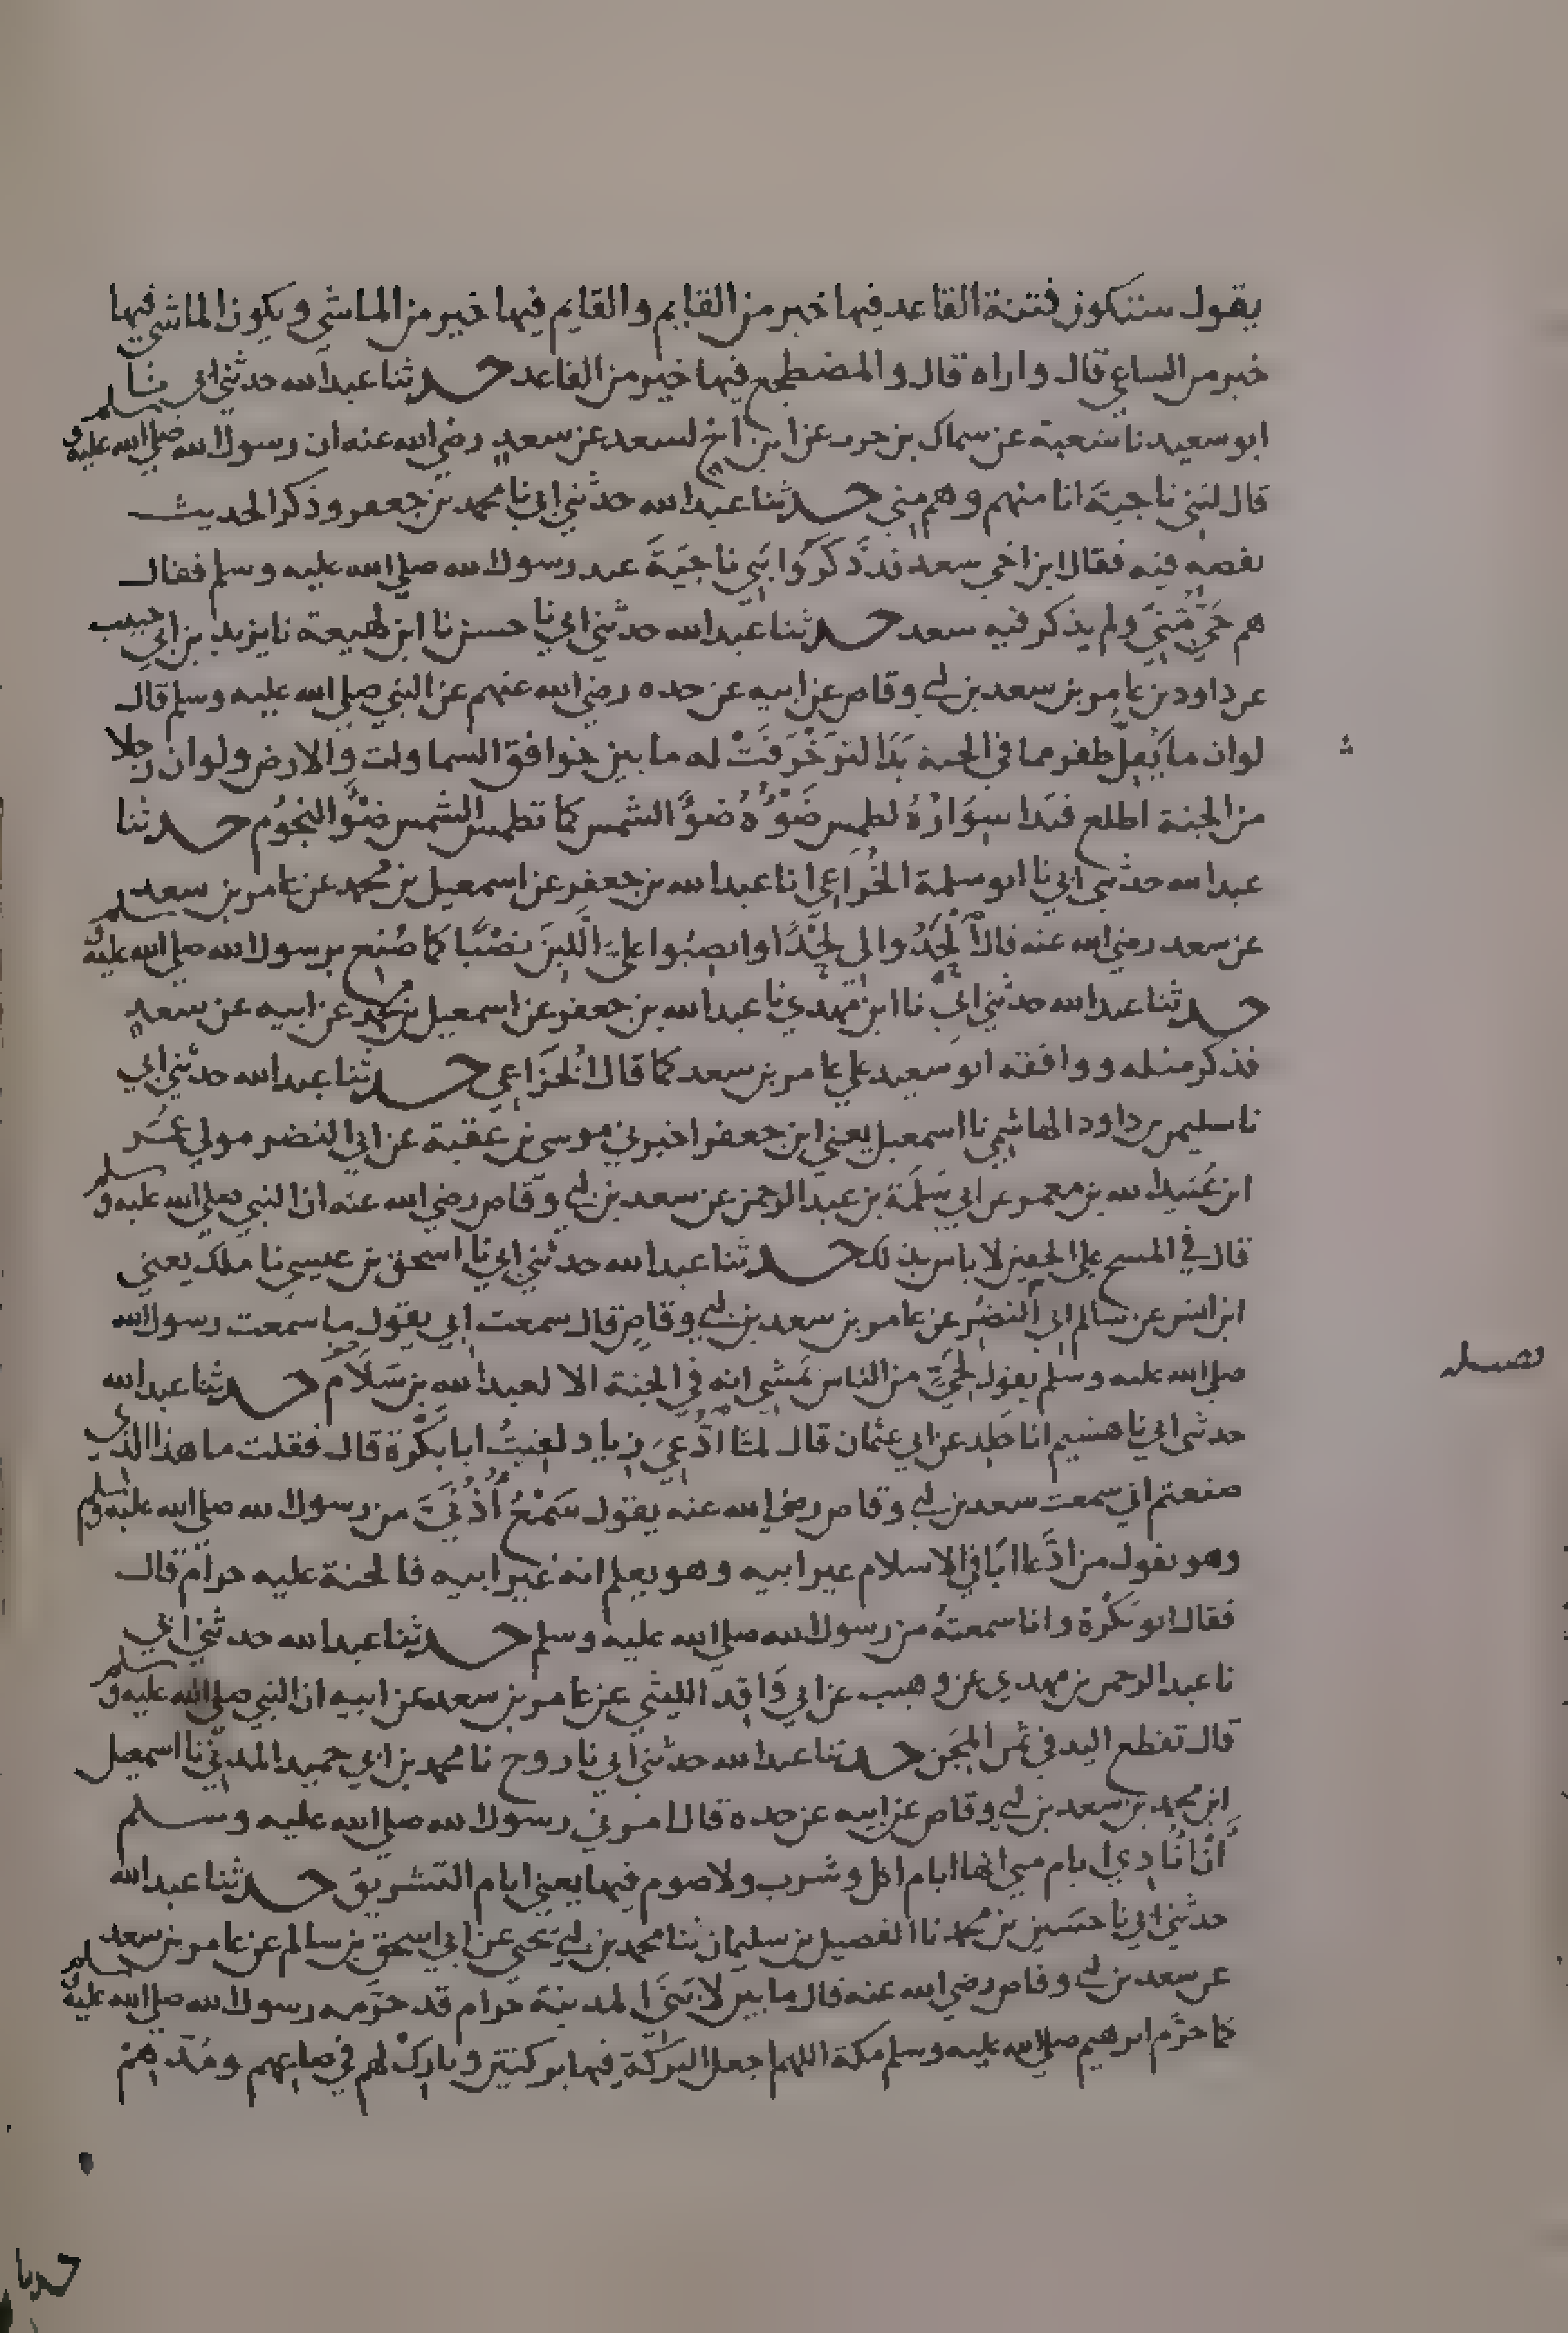 يقول ستكون فتنة القاعد فيها خير من القايم والقايم فيها خير من الماشي ويكون الماشي فيها
خير من الساعي قال واراه قال والمضطجع فيها خير من القاعد حدثنا عبد الله حدثني ابي نا
ابو سعيد نا شعبة عن سماك بن حرب عن ابن اخ لسعد عن سعد رضي الله عنه ان رسول الله صلى الله عليه وسلم
قال لبني ناجية انا منهم وهم مني حدثنا عبد الله حدثني ابي نا محمد بن جعفر وذكر الحديث
بقصه فيه فقال ابن اخي سعد قد ذكروا بني ناجية عند رسول الله صلى الله عليه وسلم فقال
هم حي مني ولم يذكر فيه سعد حدثنا عبد الله حدثني ابي نا حسن نا ابن لهيعة نا يزيد بن ابي حبيب
عن داود بن عامر بن سعد بن ابي وقاص عن ابيه عن جده رضي الله عنهم عن النبي صلى الله عليه وسلم قال
لو ان ما يقل ظفر مما في الجنة بدا لتزخرفت له ما بين خوافق السماوات والارض ولو ان رجلا
من الجنة اطلع فبدا سواره لطمس ضوؤه ضوء الشمس كما تطمس الشمس ضوء النجوم حدثنا
عبد الله حدثني ابي نا ابو سلمة الخزاعي انا عبد الله بن جعفر عن اسمعيل بن محمد عن عامر بن سعد
عن سعد رضي الله عنه قال الحدوا لي لحدا وانصبوا علي اللبن نصبا كما صنع برسول الله صلى الله عليه وسلم
حدثنا عبد الله حدثني ابي نا ابن مهدي نا عبد الله بن جعفر عن اسمعيل بن محمد عن ابيه عن سعد
فذكر مثله ووافقه ابو سعيد على عامر بن سعد كما قال الخزاعي حدثنا عبد الله حدثني ابي
نا سليمن بن داود الهاشمي نا اسمعيل يعني ابن جعفر اخبرني موسى بن عقبة عن ابي النضر مولى عمر
ابن عبيد الله بن معمر عن ابي سلمة بن عبد الرحمن عن سعد بن ابي وقاص رضي الله عنه ان النبي صلى الله عليه وسلم
قال في المسح على الخفين لا باس بذلك حدثنا عبد الله حدثني ابي نا اسحق بن عيسى نا ملك يعني
ابن انس عن سالم ابي النضر عن عامر بن سعد بن ابي وقاص قال سمعت ابي يقول ما سمعت رسول الله
صلى الله عليه وسلم يقول لحي من الناس يمشي انه في الجنة الا لعبد الله بن سلام حدثنا عبد الله
حدثني ابي نا هشيم انا خلد عن ابي عثمان قال لما ادعي زياد لقيت ابا بكرة قال فقلت ما هذا الذي
صنعتم اني سمعت سعد بن ابي وقاص رضي الله عنه يقول سمع اذني من رسول الله صلى الله عليه وسلم
وهو يقول من ادعا ابا في الاسلام غير ابيه وهو يعلم انه غير ابيه فالجنة عليه حرام قال
فقال ابو بكرة وانا سمعته من رسول الله صلى الله عليه وسلم حدثنا عبد الله حدثني ابي
نا عبد الرحمن بن مهدي عن وهيب عن ابي واقد الليثي عن عامر بن سعد عن ابيه ان النبي صلى الله عليه وسلم
قال تقطع اليد في ثمن المجن حدثنا عبد الله حدثني ابي نا روح نا محمد بن ابي حميد المدني نا اسمعيل
ابن محمد بن سعد بن ابي وقاص عن ابيه عن جده قال امرني رسول الله صلى الله عليه وسلم
ان انادي ايام منى انها ايام اكل وشرب ولا صوم فيها يعني ايام التشريق حدثنا عبد الله
حدثني ابي نا حسين بن محمد نا الفضيل بن سليمان ثنا محمد بن ابي يحيى عن ابي اسحق بن سالم عن عامر بن سعد
عن سعد بن ابي وقاص رضي الله عنه قال ما بين لابتي المدينة حرام قد حرمه رسول الله صلى الله عليه وسلم
كما حرم ابرهيم صلى الله عليه وسلم مكة اللهم اجعل البركة فيها بركتين وبارك لهم في صاعهم ومدهم